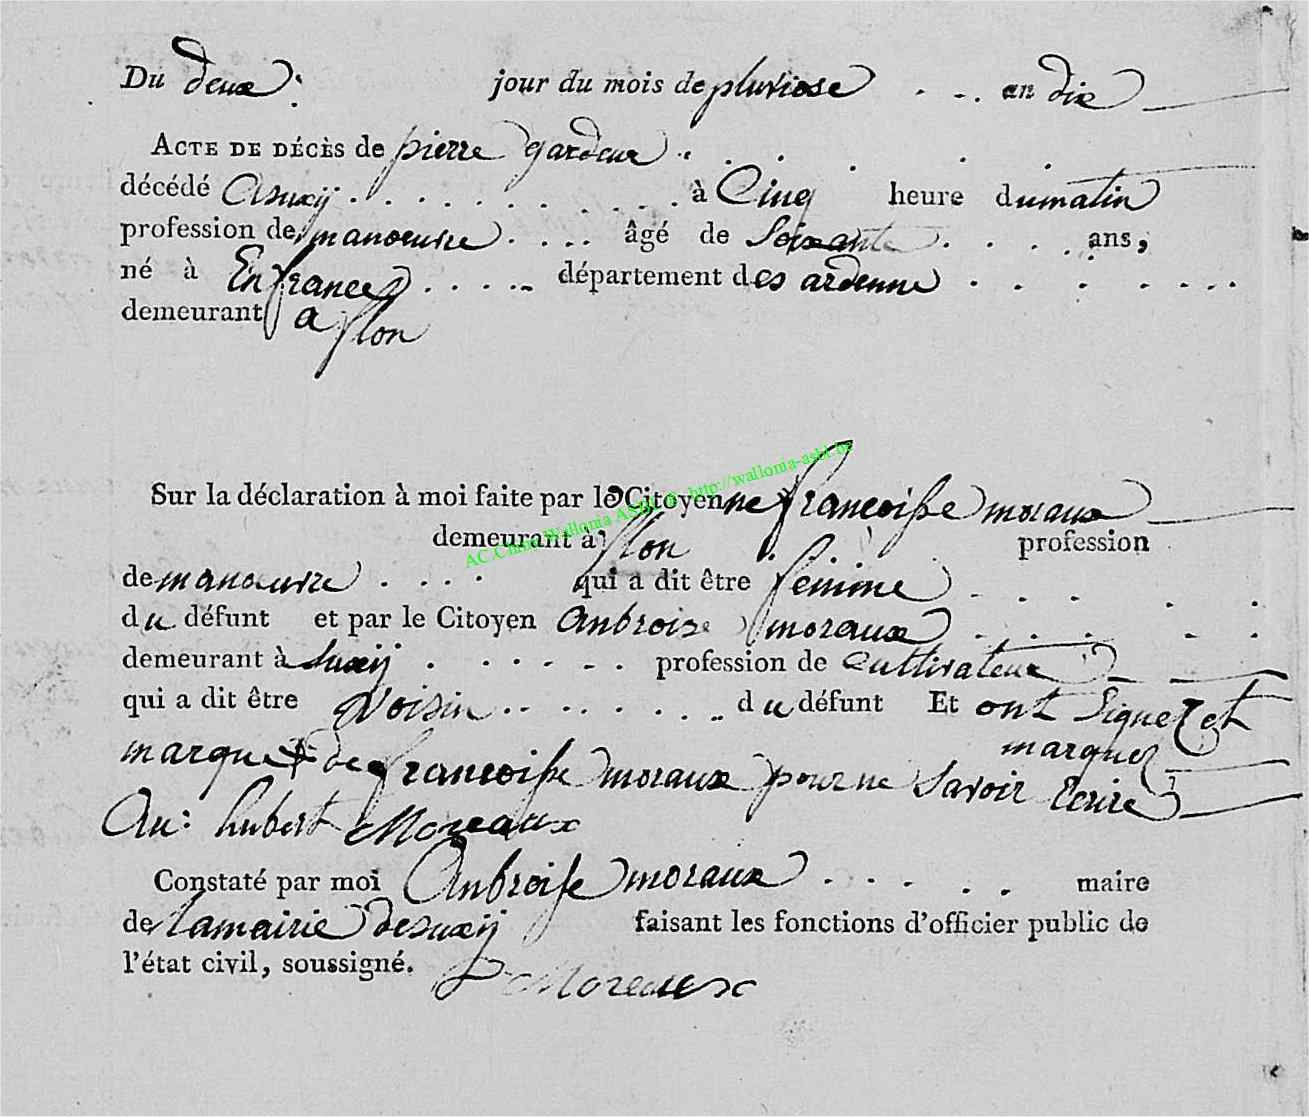 Du deux jour du mois de pluviose an dix
ACTE DE DÉCÈS de pierre gardeur
décédé a Suxÿ à Cinq heure du matin
profession de manoeuvre âgé de Soixante ans,
né à En france département des ardenne
demeurant a flon
Sur la déclaration à moi faite par le Citoyenne francoisse moraux
demeurant à flon profession
de manœuvre qui a dit être femme
du défunt et par le Citoyen Anbroise moraux
demeurant à Suxÿ profession de cultivateur
qui a dit être voisin du défunt Et ont Signez et
marquez
marque + de francoisse moraux pour ne Savoir Ecrire
hubert Moreaux
Constaté par moi Anbroisse moraux maire
de lamairie de Suxÿ faisant les fonctions d'officier public de
l'état civil, soussigné.
Moreaux
http://wallonia-asbl.be